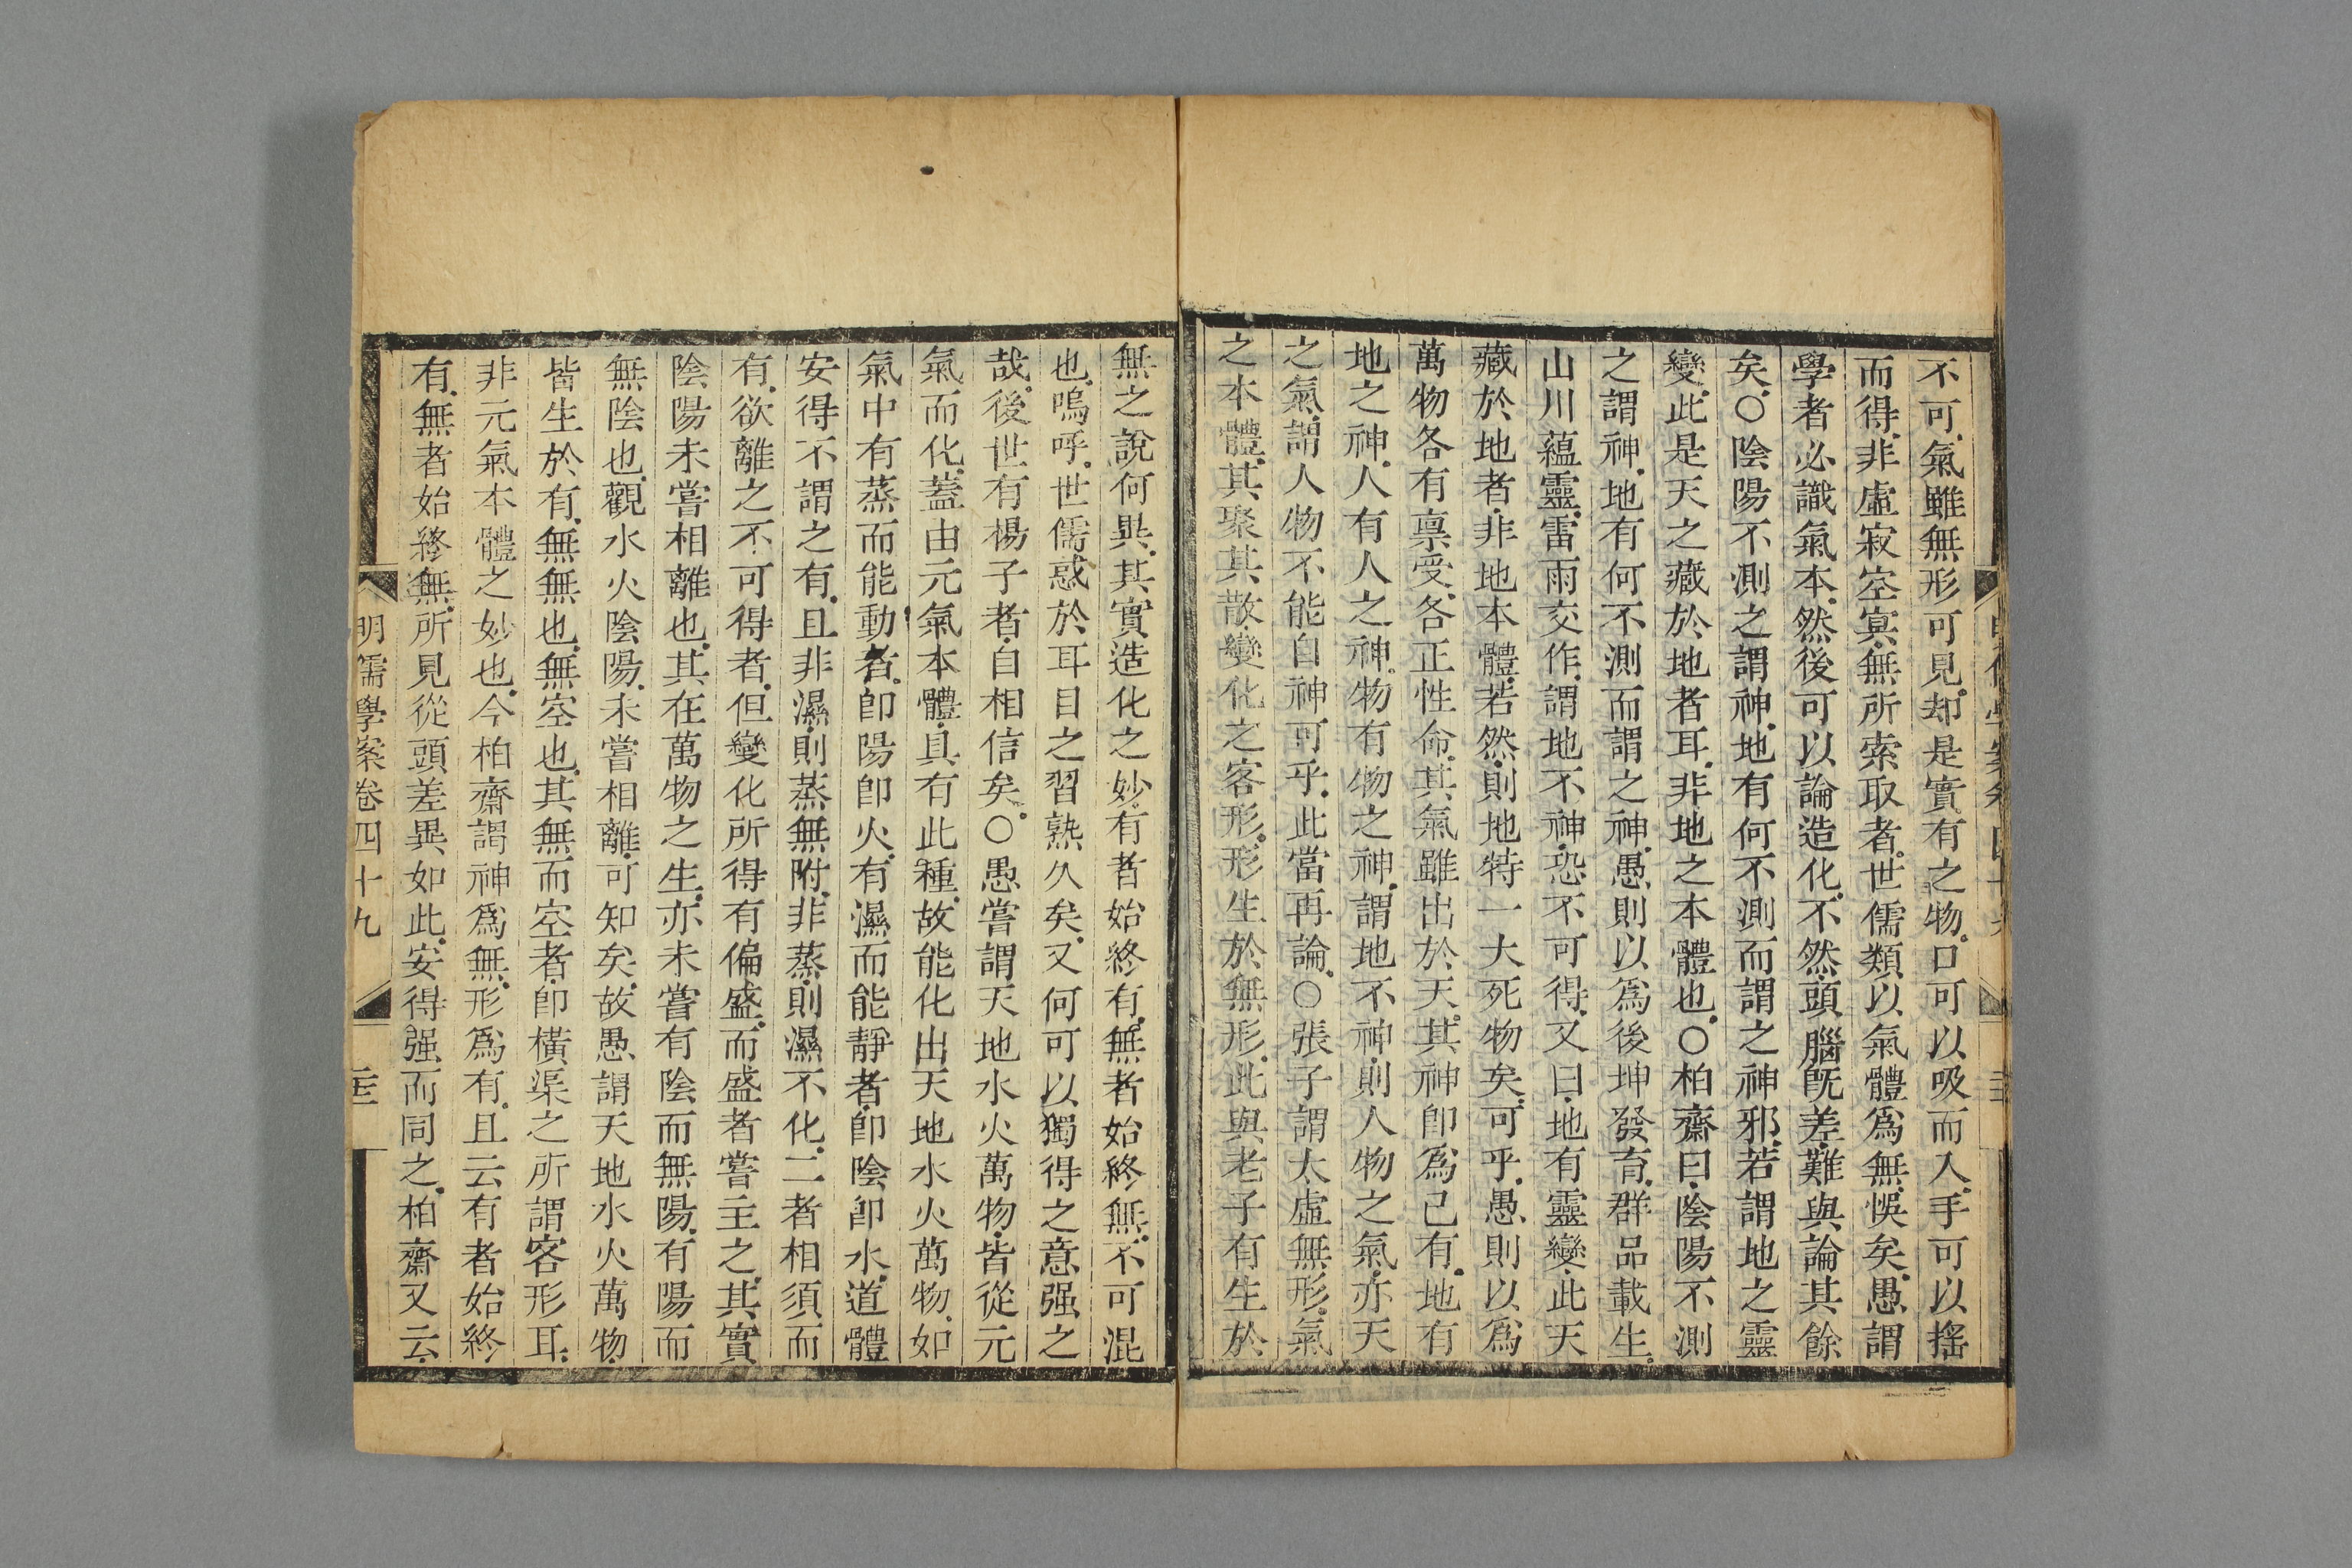 不可氣雖無形可見却是實有之物口可以吸而入手可以搖
而得非虛寂空冥無所索取者世儒類以氣體爲無悞矣愚謂
學者必識氣本然後可以論造化不然頭腦旣差難與論其餘
矣○陰陽不測之謂神地有何不測而謂之神邪若謂地之靈
變此是天之藏於地者耳非地之本體也○柏齋曰陰陽不測
之謂神地有何不測而謂之神愚則以爲後坤發育群品載生
山川蘊靈雷雨交作謂地不神恐不可得又曰地有靈變此天
藏於地者非地本體若然則地特一大死物矣可乎愚則以爲
萬物各有稟受各正性命其氣雖出於天其神卽爲己有地有
地之神人有人之神物有物之神謂地不神則人物之氣亦天
之氣謂人物不能自神可乎此當再論○張子謂太虛無形氣
之本體其聚其散變化之客形形生於無形此與老子有生於
無之說何異其實造化之妙有者始終有無者始終無不可混
也嗚呼世儒惑於耳目之習熟久矣又何可以獨得之意强之
哉後世有楊子者自相信矣○愚嘗謂天地水火萬物皆從元
氣而化蓋由元氣本體具有此種故能化出天地水火萬物如
氣中有蒸而能動者卽陽卽火有濕而能靜者卽陰卽水道體
安得不謂之有且非濕則蒸無附非蒸則濕不化二者相須而
有欲離之不可得者但變化所得有偏盛而盛者嘗主之其實
陰陽未嘗相離也其在萬物之生亦未嘗有陰而無陽有陽而
無陰也觀水火陰陽未嘗相離可知矣故愚謂天地水火萬物
皆生於有無無也無空也其無而空者卽橫渠之所謂客形耳
非元氣本體之妙也今柏齋謂神爲無形爲有且云有者始終
有無者始終無所見從頭差異如此安得强而同之柏齋又云
明儒學案卷四十九